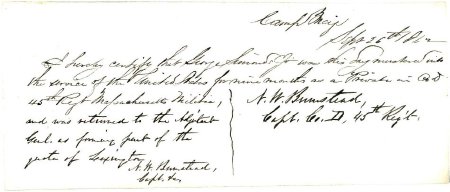 Camp Meigs
Sept 26th 1862
I hereby certify that George Simonds Jr was this day mustered into
the service of the United States for nine months as a Private in Co D
45th Regt Massachusetts Militia,
and was returned to the Adjutant
Genl. as forming part of the
quota of Lexington
N. W. Bumstead,
Capt. &c.
N. W. Bumstead,
Capt. Co. D, 45th Regt.